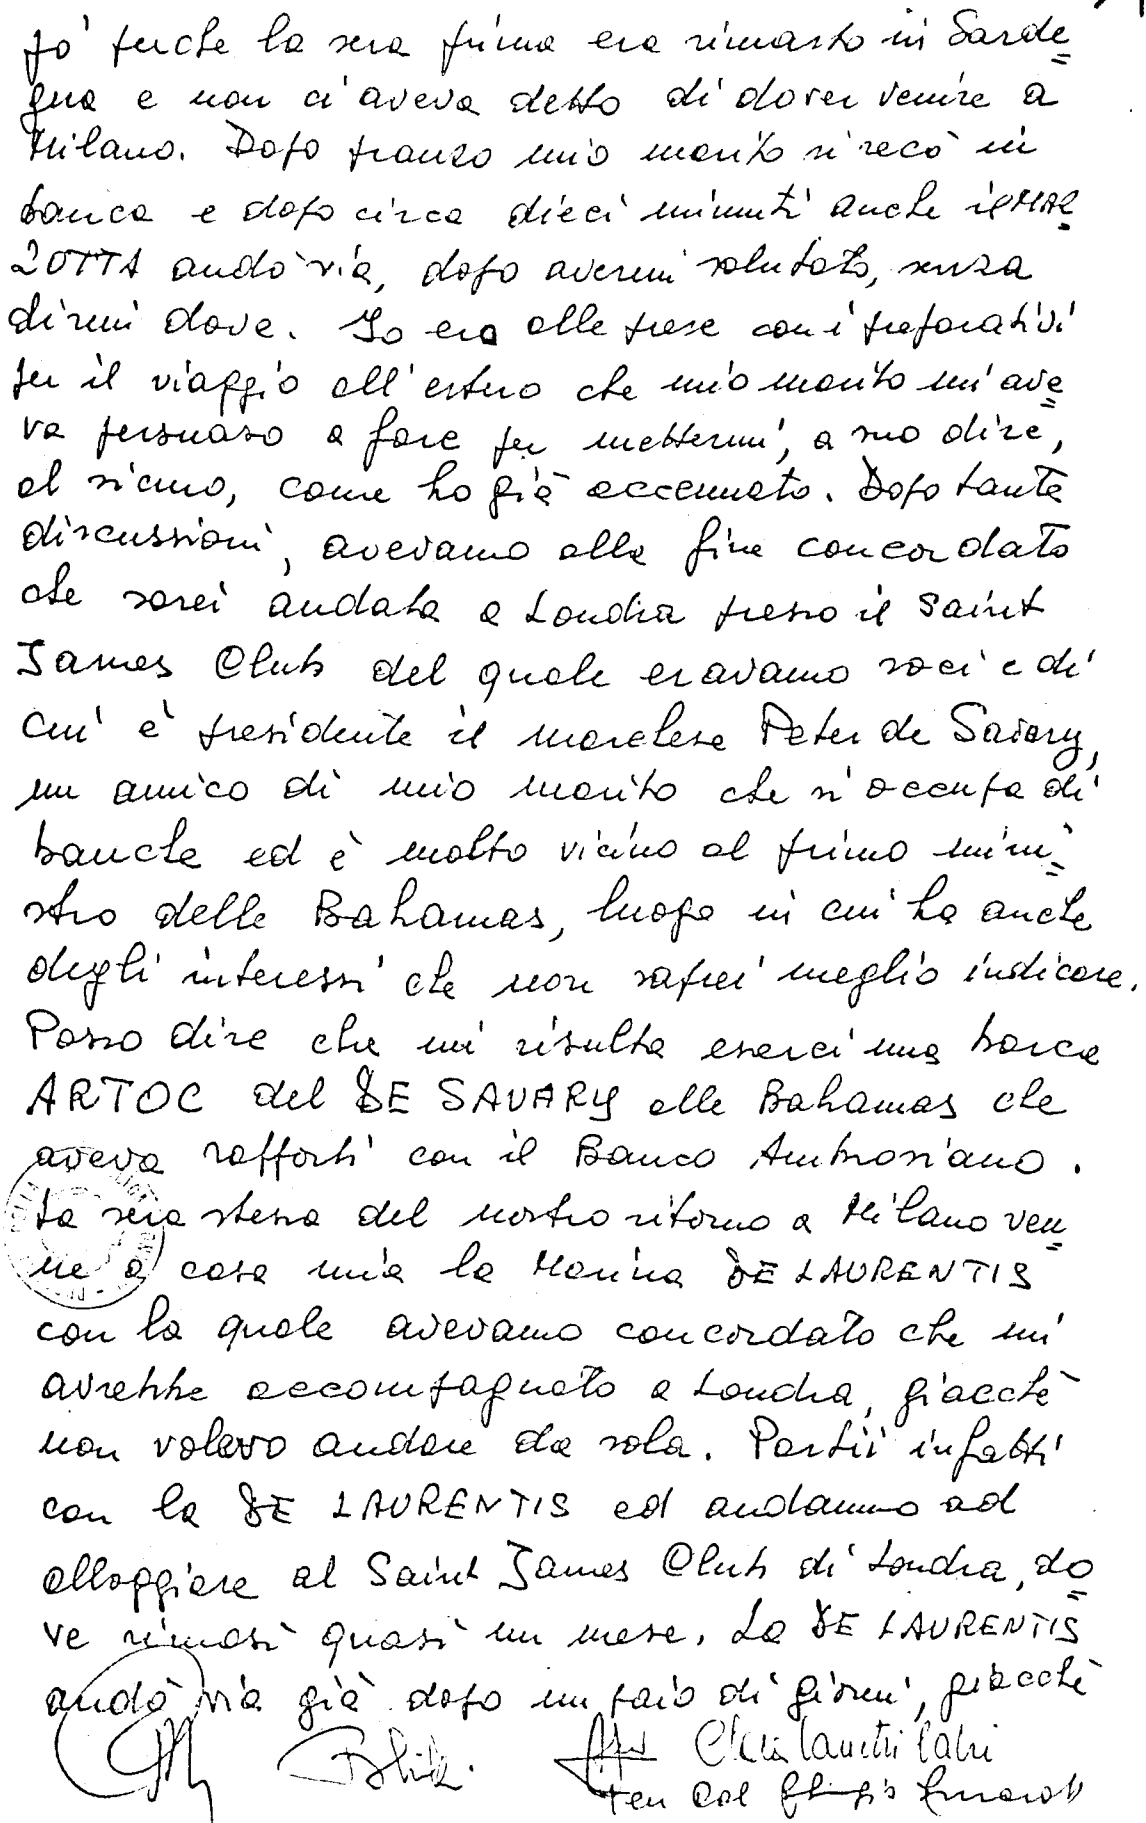 pò perche la sera prima era rimasto in Sarde
gna e non ci aveva detto di dover venire a
Milano. Dopo pranzo mio marito si recò in
banca e dopo circa dieci minuti anche il MAZ
ZOTTA andò via, dopo avermi salutato, senza
dirmi dove. Io ero alle prese con i preparativi
per il viaggio all'estero che mio marito mi ave
va persuaso a fare per mettermi, a suo dire,
al sicuro, come ho già accennato. Dopo tante
discussioni, avevamo alla fine concordato
che sarei andata a Londra presso il Saint
James Club del quale eravamo soci e di
cui è presidente il
Peter de Savary,
un amico di mio marito che si occupa di
banche ed è molto vicino al primo mini
stro delle Bahamas, luogo in cui ha anche
degli interessi che non saprei meglio indicare.
Posso dire che mi risulta esserci una banca
ARTOC del DE SAVARY alle Bahamas che
aveva rapporti con il Banco Ambrosiano.
La sera stessa del nostro ritorno a Milano ven
ne a casa mia la Marina DE LAURENTIS
con la quale avevamo concordato che mi
avrebbe accompagnato a Londra, giacchè
non volevo andare da sola. Partii infatti
con la DE LAURENTIS ed andammo ad
alloggiare al Saint James Club di Londra, do
ve rimasi quasi un mese. La DE LAURENTIS
andò via già dopo un paio di giorni, giacchè
Clara Canetti Calvi
Ten Col